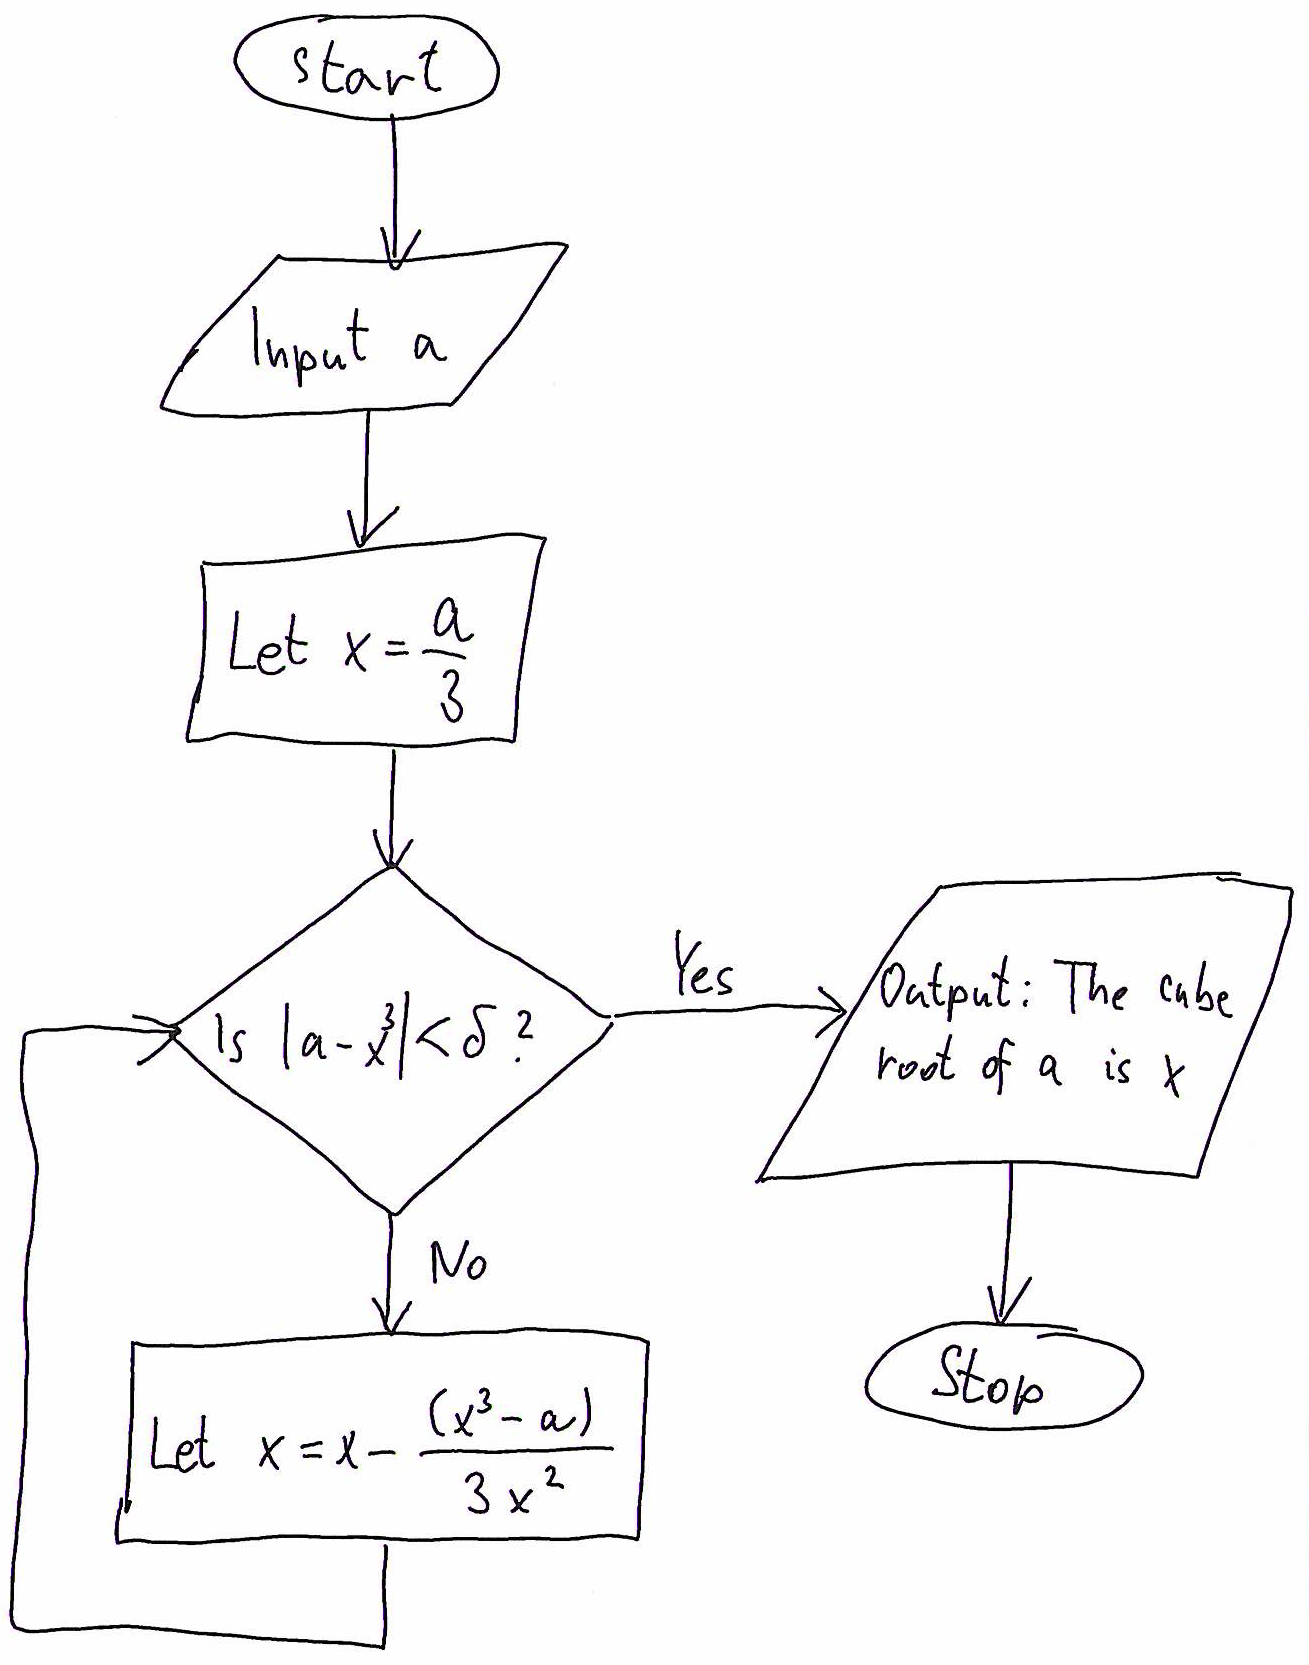 start
Input a
Let x = a/3
Is |a - x³| < δ ?
Yes
Output: The cube
root of a is x
No
Stop
Let x = x - (x³ - a)/3x²